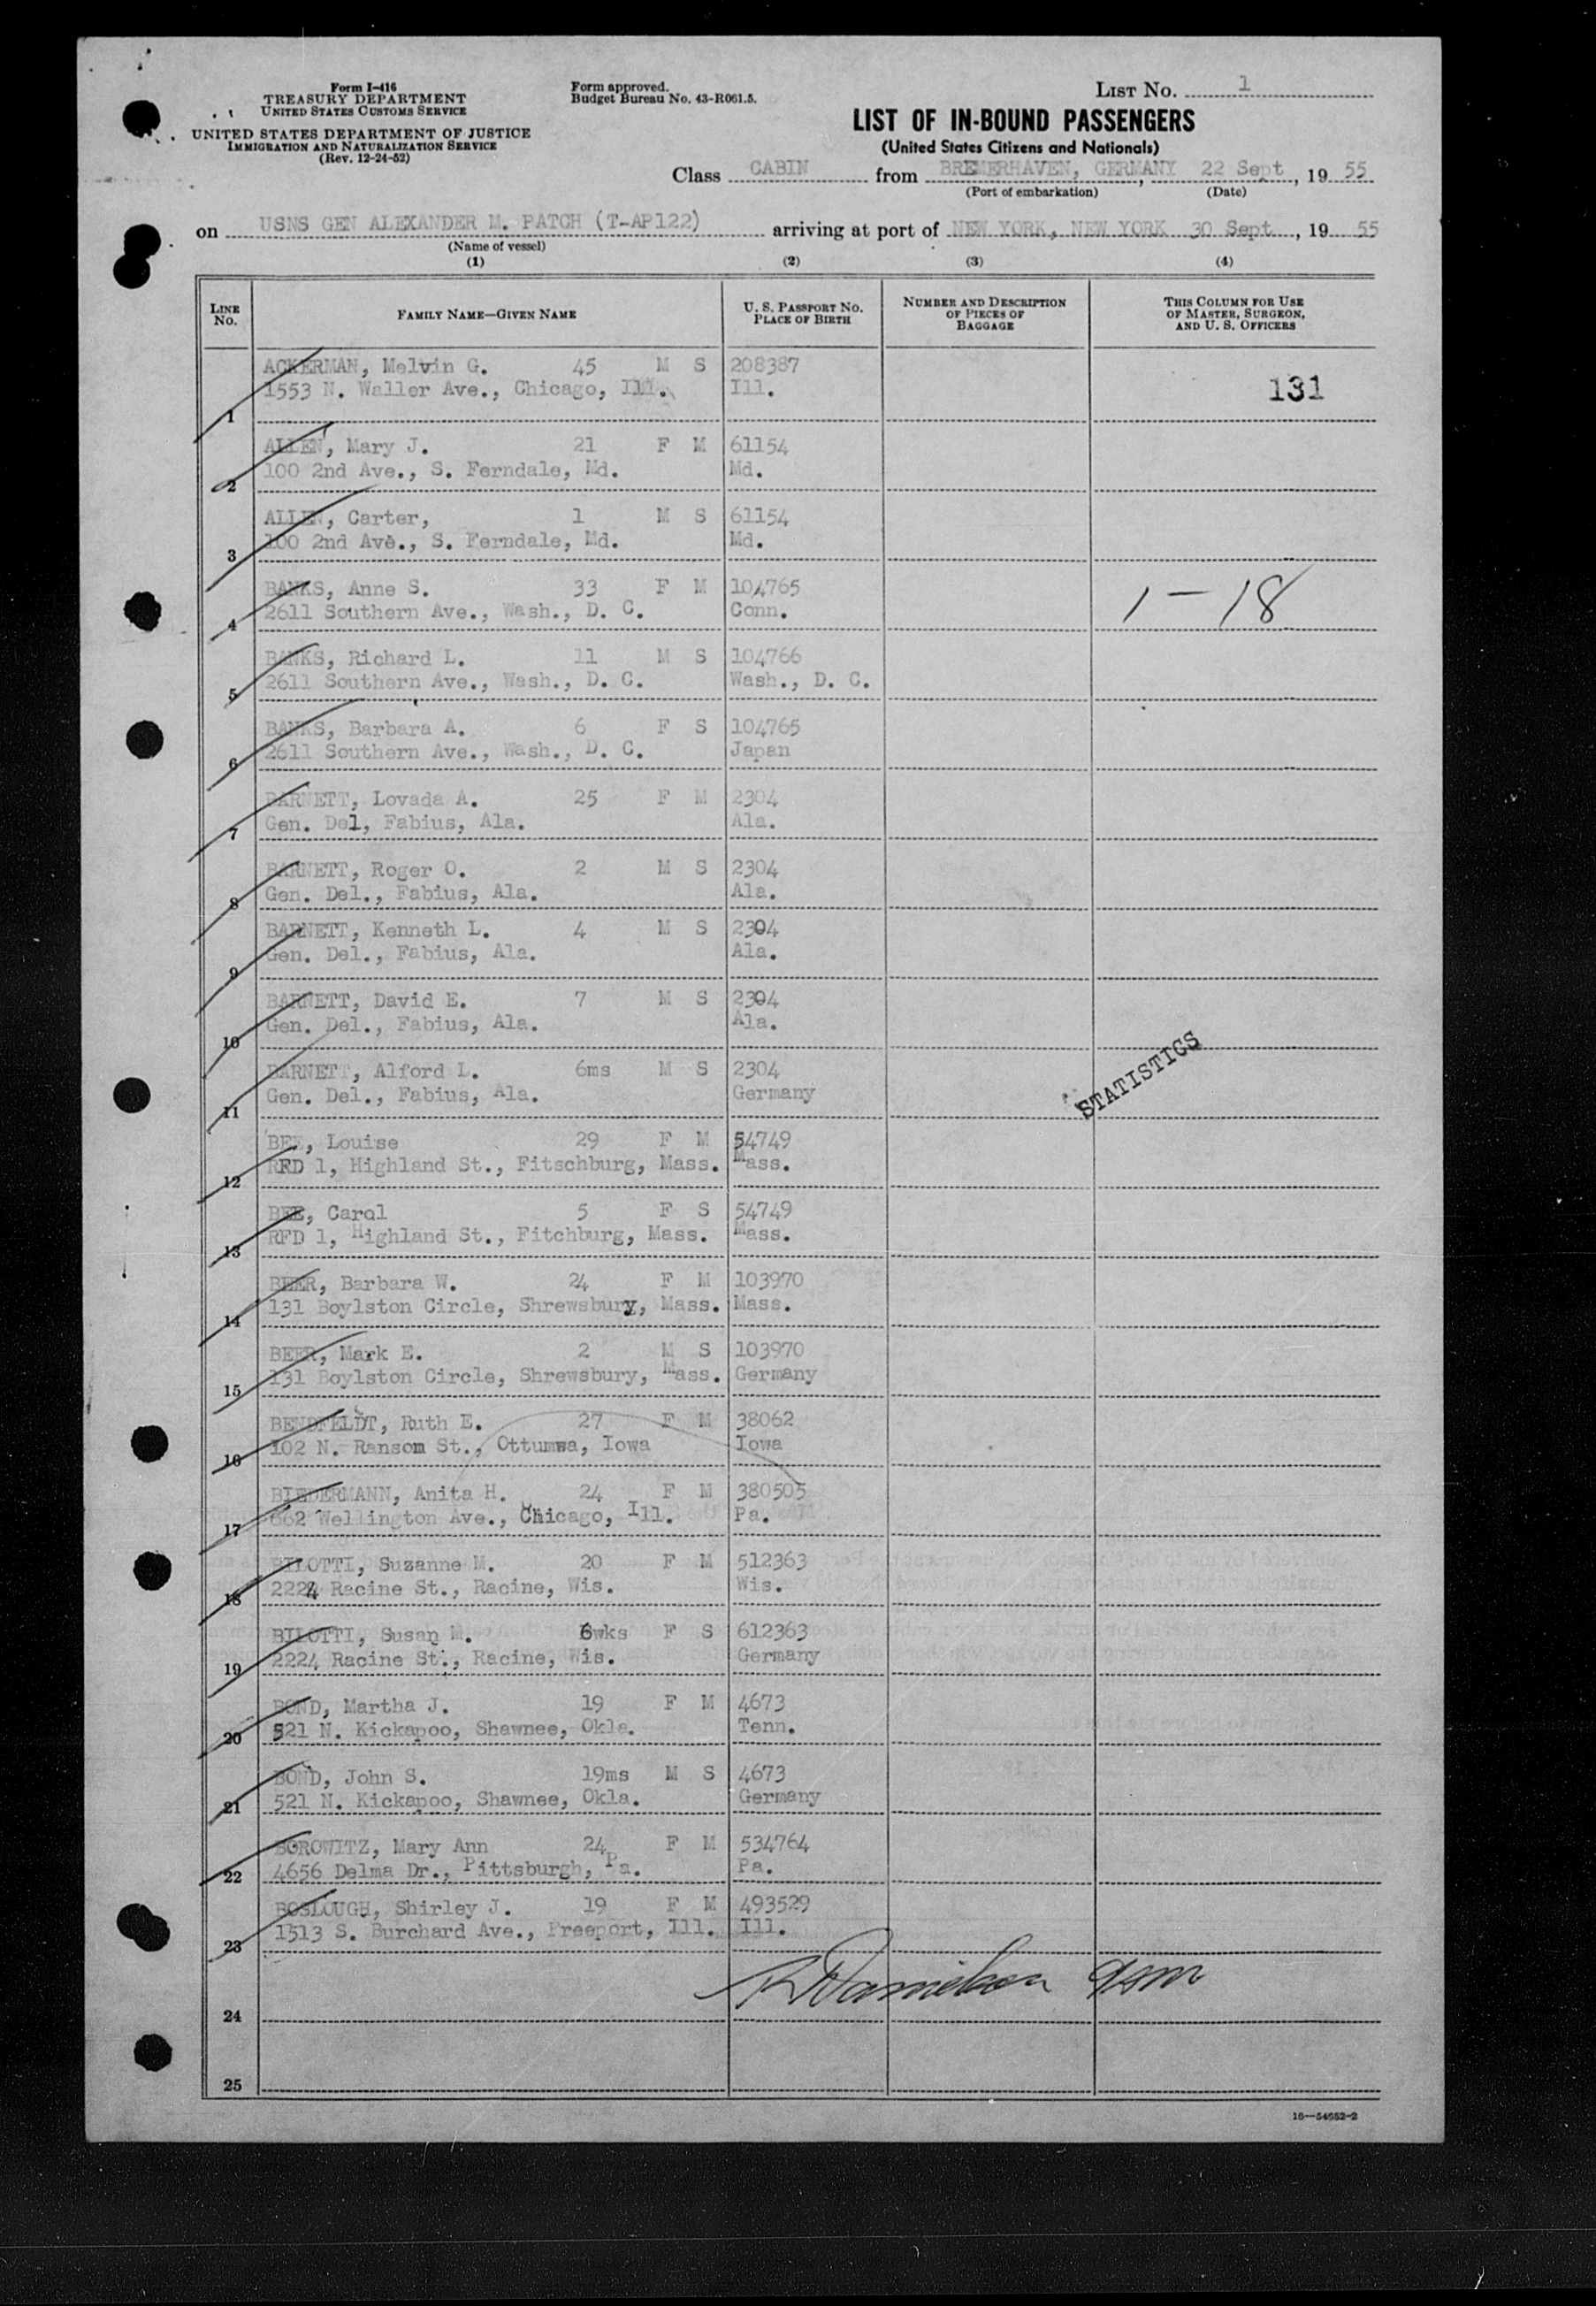 Form I-416
TREASURY DEPARTMENT
UNITED STATES CUSTOMS SERVICE
UNITED STATES DEPARTMENT OF JUSTICE
IMMIGRATION AND NATURALIZATION SERVICE
(Rev. 12-24-52)
Form approved.
Budget Bureau No. 43-R061.5.
LIST NO. 1
LIST OF IN-BOUND PASSENGERS
(United States Citizens and Nationals)
Class CABIN from BREMERHAVEN, GERMANY, 22 Sept, 1955
(Port of embarkation) (Date)
on USNS GEN ALEXANDER M. PATCH (T-AP122) arriving at port of NEW YORK, NEW YORK 30 Sept, 1955
(Name of vessel)
(1) (2) (3) (4)
LINE NO. FAMILY NAME—GIVEN NAME U. S. PASSPORT NO. PLACE OF BIRTH NUMBER AND DESCRIPTION OF PIECES OF BAGGAGE THIS COLUMN FOR USE OF MASTER, SURGEON, AND U. S. OFFICERS
ACKERMAN, Melvin G. 45 M S 208387
1553 N. Waller Ave., Chicago, Ill. Ill. 131
1
ALLEN, Mary J. 21 F M 61154
100 2nd Ave., S. Ferndale, Md. Md.
2
ALLEN, Carter, 1 M S 61154
100 2nd Ave., S. Ferndale, Md. Md.
3
BANKS, Anne S. 33 F M 104765
2611 Southern Ave., Wash., D. C. Conn. 1-18
4
BANKS, Richard L. 11 M S 104766
2611 Southern Ave., Wash., D. C. Wash., D. C.
5
BANKS, Barbara A. 6 F S 104765
2611 Southern Ave., Wash., D. C. Japan
6
BARNETT, Lovada A. 25 F M 2304
Gen. Del, Fabius, Ala. Ala.
7
BARNETT, Roger O. 2 M S 2304
Gen. Del., Fabius, Ala. Ala.
8
BARNETT, Kenneth L. 4 M S 2304
Gen. Del., Fabius, Ala. Ala.
9
BARNETT, David E. 7 M S 2304
Gen. Del., Fabius, Ala. Ala.
10
BARNETT, Alford L. 6ms M S 2304
Gen. Del., Fabius, Ala. Germany
STATISTICS
11
BEE, Louise 29 F M 54749
RFD 1, Highland St., Fitschburg, Mass. Mass.
12
BEE, Carol 5 F S 54749
RFD 1, Highland St., Fitchburg, Mass. Mass.
13
BEER, Barbara W. 24 F M 103970
131 Boylston Circle, Shrewsbury, Mass. Mass.
14
BEER, Mark E. 2 M S 103970
131 Boylston Circle, Shrewsbury, Mass. Germany
15
BENDFELDT, Ruth E. 27 F M 38062
102 N. Ransom St., Ottumwa, Iowa Iowa
16
BIEDERMANN, Anita H. 24 F M 380505
662 Wellington Ave., Chicago, Ill. Pa.
17
BILOTTI, Suzanne M. 20 F M 512363
2224 Racine St., Racine, Wis. Wis.
18
BILOTTI, Susan M. 6wks F S 612363
2224 Racine St., Racine, Wis. Germany
19
BOND, Martha J. 19 F M 4673
521 N. Kickapoo, Shawnee, Okla. Tenn.
20
BOND, John S. 19ms M S 4673
521 N. Kickapoo, Shawnee, Okla. Germany
21
BOROWITZ, Mary Ann 24 F M 534764
4656 Delma Dr., Pittsburgh, Pa. Pa.
22
BOSLOUGH, Shirley J. 19 F M 493529
1513 S. Burchard Ave., Freeport, Ill. Ill.
23
24
25
16—54682-2